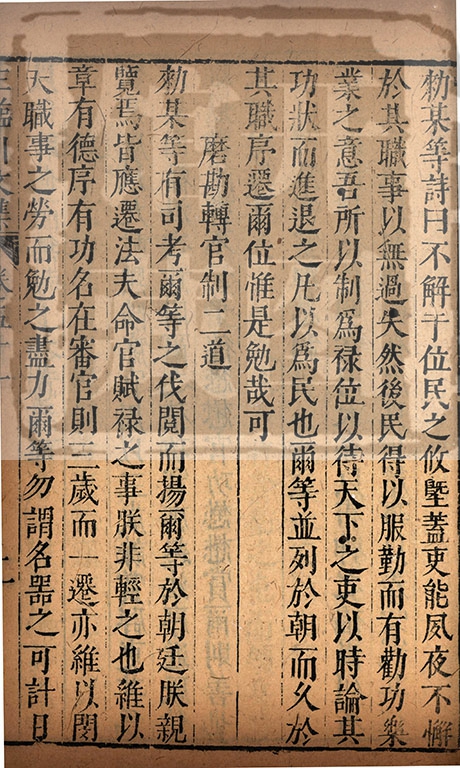 勑某等詩曰不解于位民之攸塈蓋吏能夙夜不懈
於其職事以無過失然後民得以服勤而有勸功樂
業之意吾所以制爲祿位以待天下之吏以時論其
功狀而進退之凡以爲民也爾等並列於朝而久於
其職序遷爾位惟是勉哉可
磨勘轉官制二道
勑某等有司考爾等之伐閱而揚爾等於朝廷朕親
覽焉皆應遷法夫命官賦祿之事朕非輕之也維以
章有德序有功名在審官則三歲而一遷亦維以閔
大職事之勞而勉之盡力爾等勿謂名器之可計日
王臨川文集 卷五十一